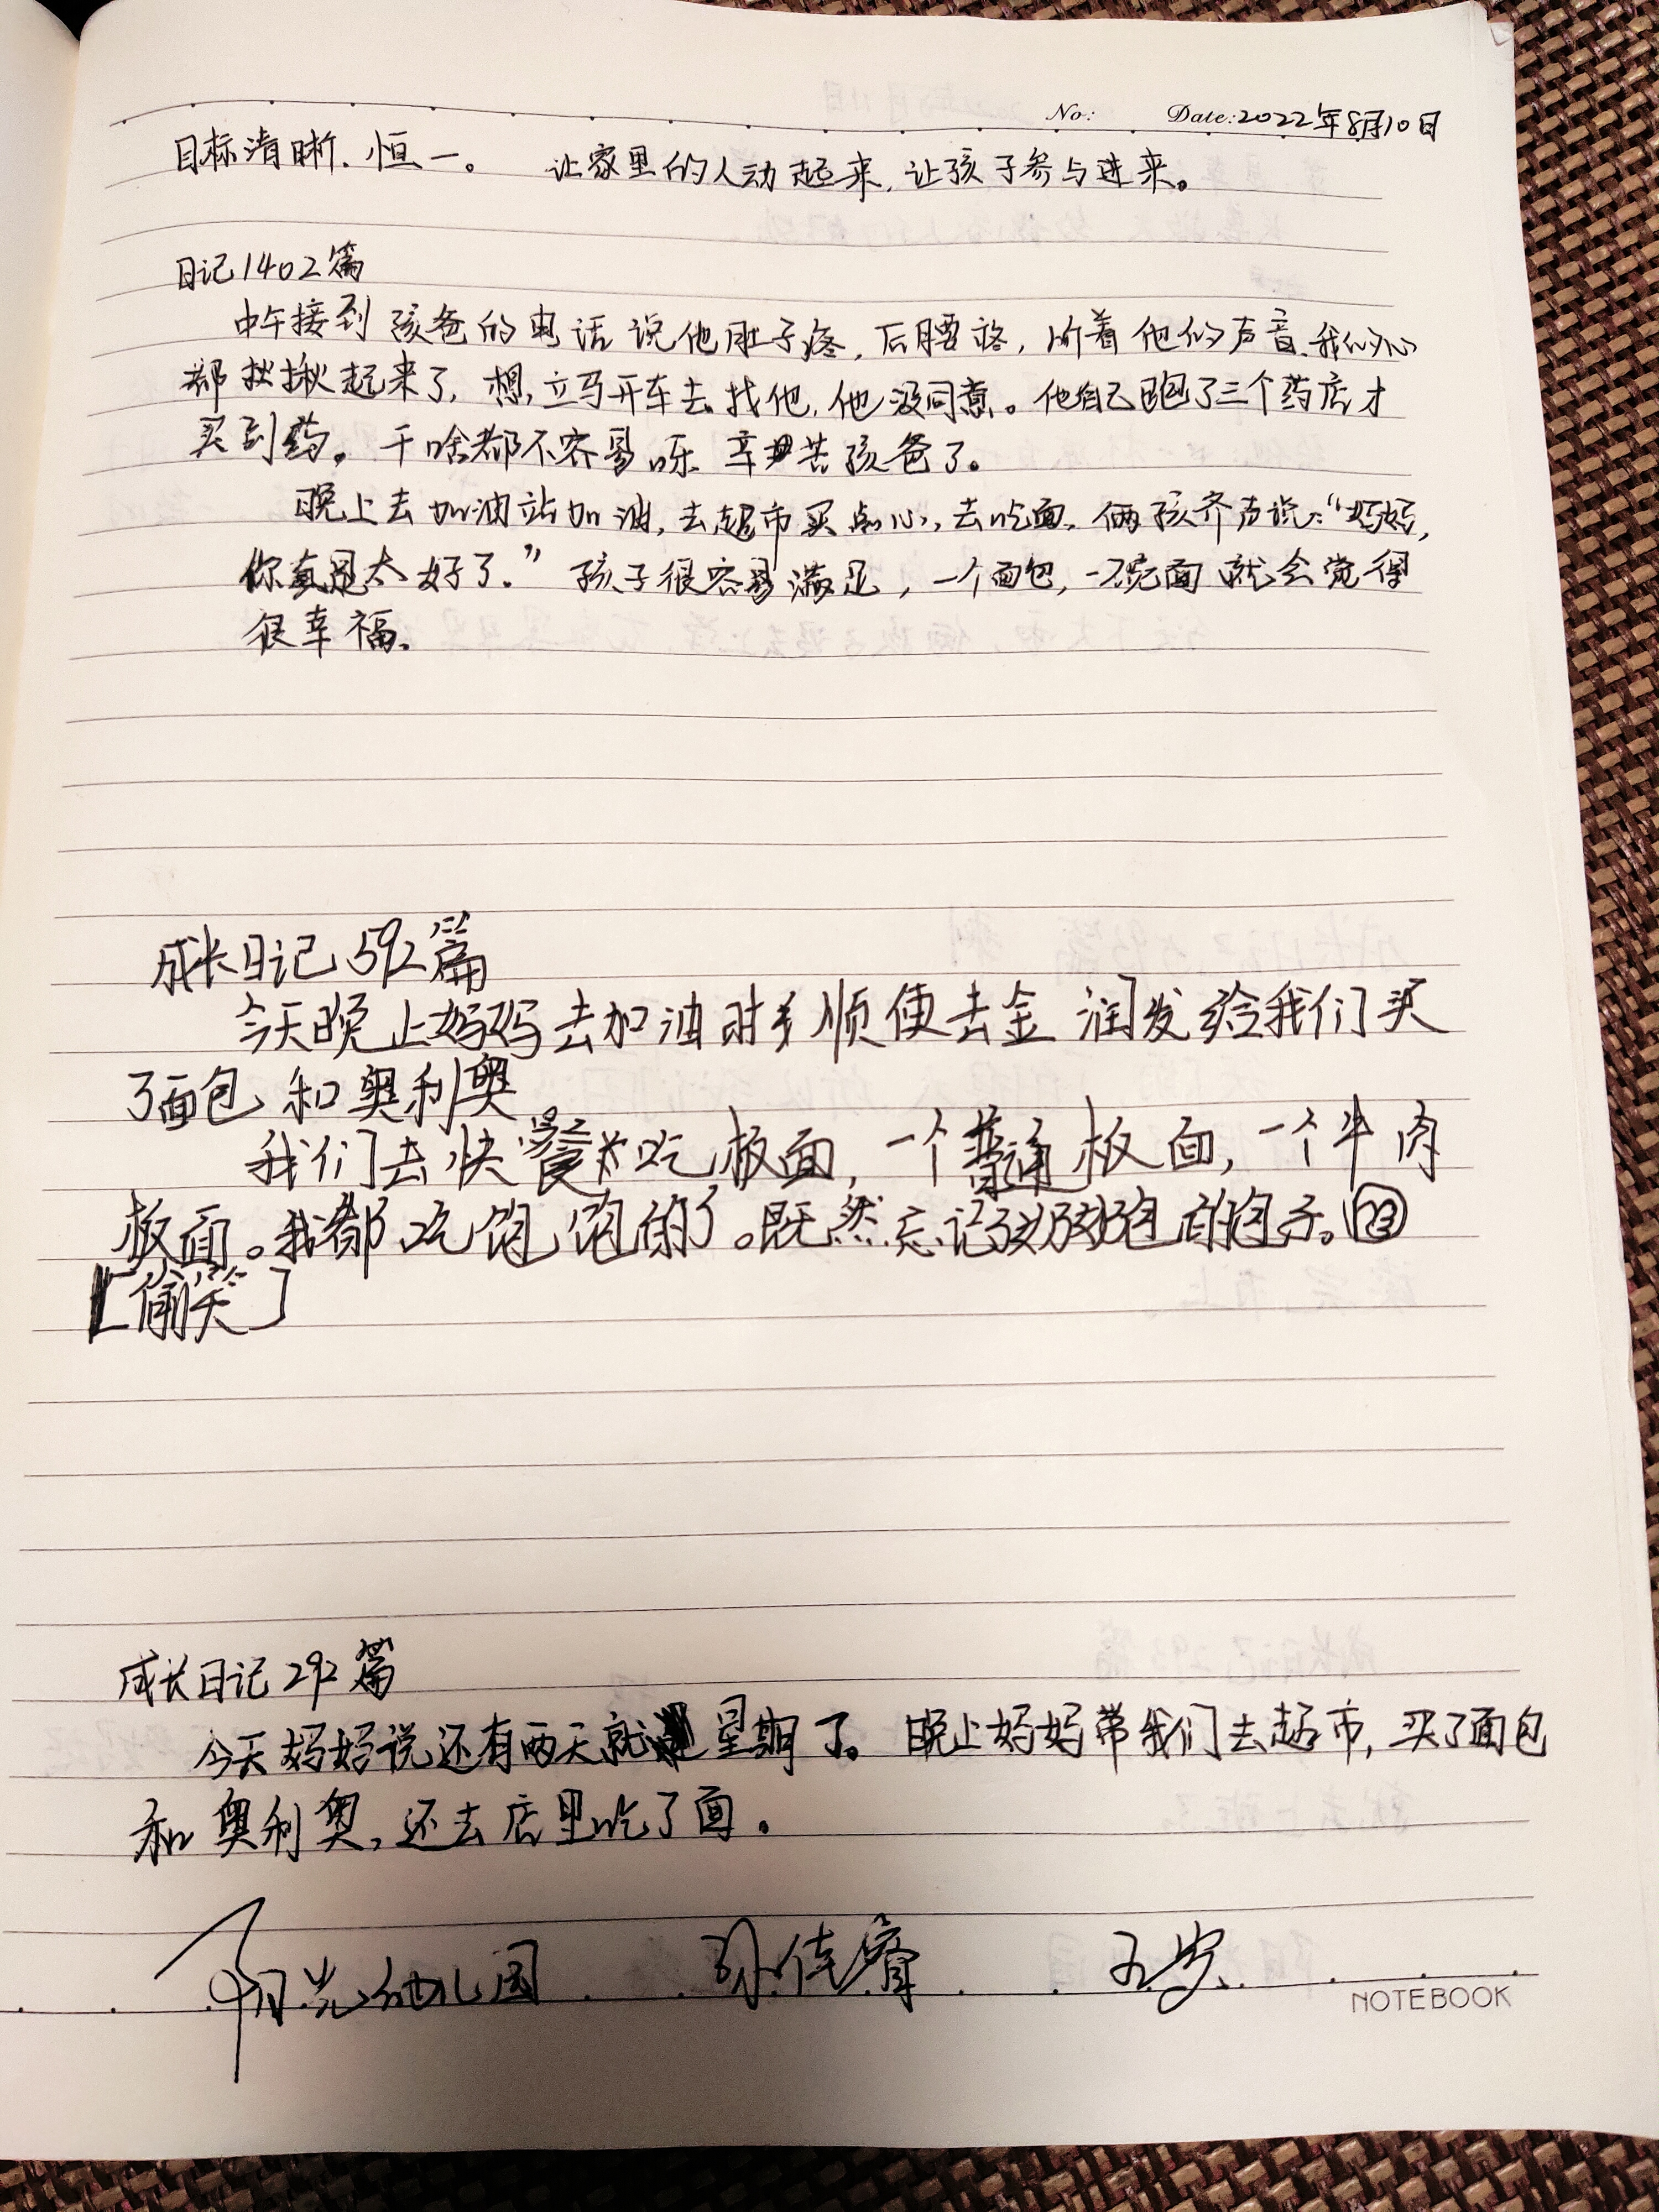 No: Date:2022年8月10日
目标清晰.恒一。 让家里的人动起来,让孩子参与进来。
日记1402篇
中午接到孩爸的电话说他肚子疼,后腰疼,听着他的声音.我的心
都揪揪起来了,想,立马开车去找他,他没同意。他自己跑了三个药店才
买到药。干啥都不容易呀 辛苦孩爸了。
晚上去加油站加油,去超市买点心,去吃面,俩孩齐声说:“妈妈,
你真是太好了.”孩子很容易满足,一个面包,一碗面就会觉得
很幸福.
成长日记592篇
今天晚上妈妈去加油时顺便去金润发给我们买
了面包和奥利奥
我们去快餐吃板面,一个普通板面,一个牛肉
板面。我都吃饱饱的了。既然忘记奶奶包的包子。
[偷笑]
成长日记292篇
今天妈妈说还有两天就星期了。晚上妈妈带我们去超市,买了面包
和奥利奥,还去店里吃了面。
阳光幼儿园 孙佳睿 五岁
NOTEBOOK